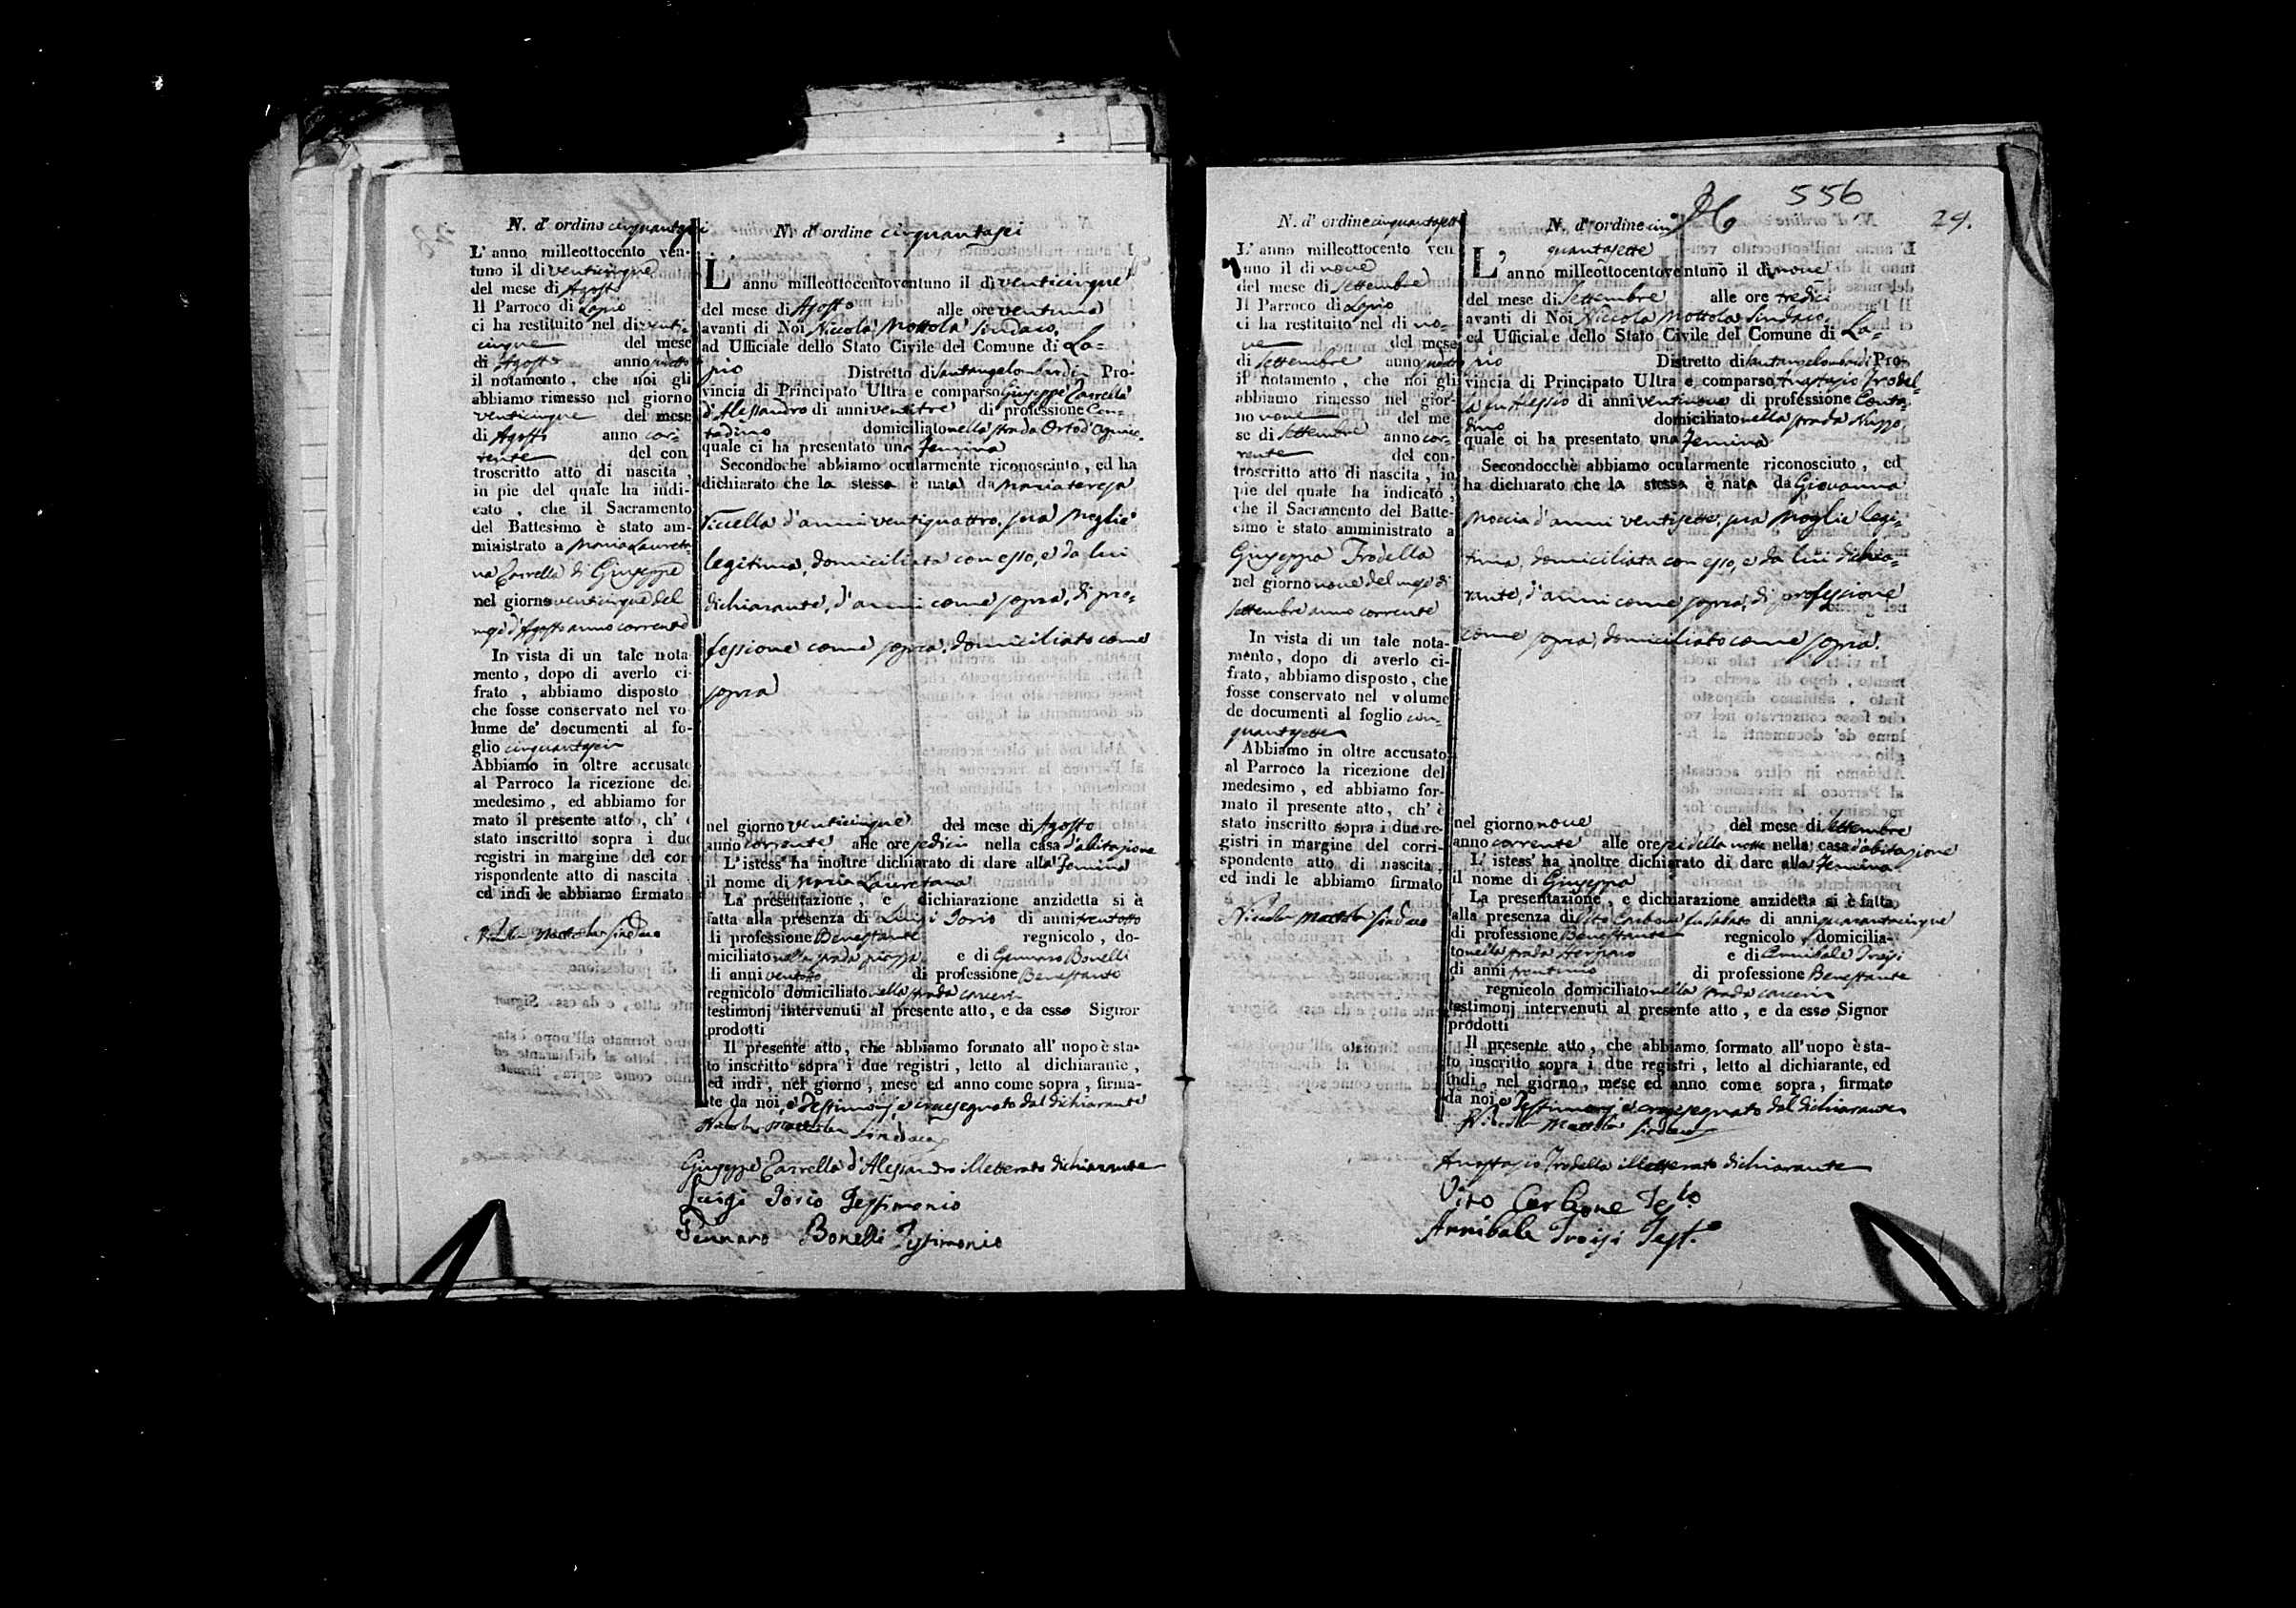 N. d' ordine cinquantasei
L' anno milleottocento ven-
tuno il di venticinque
del mese di Agosto
Il Parroco di Lapio
ci ha restituito nel di venti-
cinque del mese
di Agosto anno
il notamento, che noi gli
abbiamo rimesso nel giorno
venticinque del mese
di Agosto anno cor-
rente del con
troscritto atto di nascita,
in piè del quale ha indi-
cato, che il Sacramento
del Battesimo è stato am-
ministrato a Maria Laureta-
na Zarrella di Giuseppe
nel giorno venticinque del
mese d'Agosto anno corrente
In vista di un tale nota-
mento, dopo di averlo ci-
frato, abbiamo disposto,
che fosse conservato nel vo
lume de' documenti al fo-
glio cinquantasei
Abbiamo in oltre accusato
al Parroco la ricezione del
medesimo, ed abbiamo for
mato il presente atto, ch' è
stato inscritto sopra i due
registri in margine del cor
rispondente atto di nascita
ed indi le abbiamo firmato
Niccola Mottola Sindaco
N. d' ordine cinquantasei
L' anno milleottocentoventuno il di venticinque
del mese di Agosto alle ore ventuno
avanti di Noi Niccola Mottola Sindaco,
ad Uffiziale dello Stato Civile del Comune di La-
pio Distretto di Santangelombardi Pro-
vincia di Principato Ultra è comparso Giuseppe Zarrella
d'Alessandro di anni ventitre di professione Con-
tadino domiciliato nella strada Orto d'
quale ci ha presentato una Femina
Secondochè abbiamo ocularmente riconosciuto, ed ha
dichiarato che la stessa è nata da Mariateresa
d'anni ventiquattro, sua Moglie
legitima, domiciliata con esso, e da lui
dichiarante, d'anni come sopra, di pro-
fessione come sopra, domiciliato come
sopra
nel giorno venticinque del mese di Agosto
anno corrente alle ore sedici nella casa d'abitazione
L' istess' ha inoltre dichiarato di dare alla Femina
il nome di Maria Lauretana
La presentazione, e dichiarazione anzidetta si è
fatta alla presenza di Luigi Iorio di anni trentotto
di professione Benestante regnicolo, do-
miciliato nella strada piazza e di Gennaro Bonelli
di anni ventotto di professione Benestante
regnicolo domiciliato nella strada carceri
testimonj intervenuti al presente atto, e da esso Signor
prodotti
Il presente atto, che abbiamo formato all' uopo è sta-
to inscritto sopra i due registri, letto al dichiarante,
ed indi, nel giorno, mese ed anno come sopra, firma-
te da noi, e Testimonj, e crocesegnato dal dichiarante
Niccola Mottola Sindaco
Giuseppe Zarrella d'Alessandro illetterato dichiarante
Luigi Iorio Testimonio
Gennaro Bonelli Testimonio
556
29.
N. d' ordine cinquantasette
L' anno milleottocento ven
tuno il di nove
del mese di Settembre
Il Parroco di Lapio
ci ha restituito nel di no-
ve del mese
di Settembre anno
il notamento, che noi gli
abbiamo rimesso nel gior-
no nove del me
se di Settembre anno cor-
rente del con-
troscritto atto di nascita, in
piè del quale ha indicato,
che il Sacramento del Batte-
simo è stato amministrato a
Giuseppa Trodella
nel giorno nove del mese di
Settembre anno corrente
In vista di un tale nota-
mento, dopo di averlo ci-
frato, abbiamo disposto, che
fosse conservato nel volume
de documenti al foglio cin-
quantasette
Abbiamo in oltre accusato
al Parroco la ricezione del
medesimo, ed abbiamo for-
mato il presente atto, ch' è
stato inscritto sopra i due re-
gistri in margine del corri-
spondente atto di nascita,
ed indi le abbiamo firmato
Niccola Mottola Sindaco
N. d' ordine cin-
quantasette
L' anno milleottocentoventuno il di nove
del mese di Settembre alle ore tredici
avanti di Noi Niccola Mottola Sindaco
ed Ufficiale dello Stato Civile del Comune di La-
pio Distretto di Santangelombardi Pro-
vincia di Principato Ultra è comparso Anastasio Trodel-
la fu Alessio di anni ventinove di professione Conta-
dino domiciliato nella strada
quale ci ha presentato una Femina
Secondocchè abbiamo ocularmente riconosciuto, ed
ha dichiarato che la stessa è nata da Giovanna
Moccia d'anni ventisette, sua Moglie legi-
tima, domiciliata con esso, e da lui dichia-
rante, d'anni come sopra, di professione
come sopra, domiciliato come sopra.
nel giorno nove del mese di Settembre
anno corrente alle ore sei della notte nella casa d'abitazione
L' istess' ha inoltre dichiarato di dare alla Femina
il nome di Giuseppa
La presentazione, e dichiarazione anzidetta si è fatta
alla presenza di Vito Carbone fu Sabato di anni quarantacinque
di professione Benestante regnicolo, domicilia-
to nella strada e di Annibale Troisi
di anni trentuno di professione Benestante
regnicolo domiciliato nella strada carceri
testimonj intervenuti al presente atto, e da esso Signor
prodotti
Il presente atto, che abbiamo formato all' uopo è sta-
to inscritto sopra i due registri, letto al dichiarante, ed
indi, nel giorno, mese ed anno come sopra, firmato
da noi, e Testimonj, e crocesegnato dal dichiarante
Niccola Mottola Sindaco
Anastasio Trodella illetterato dichiarante
Vito Carbone Testo
Annibale Troisi Test.o